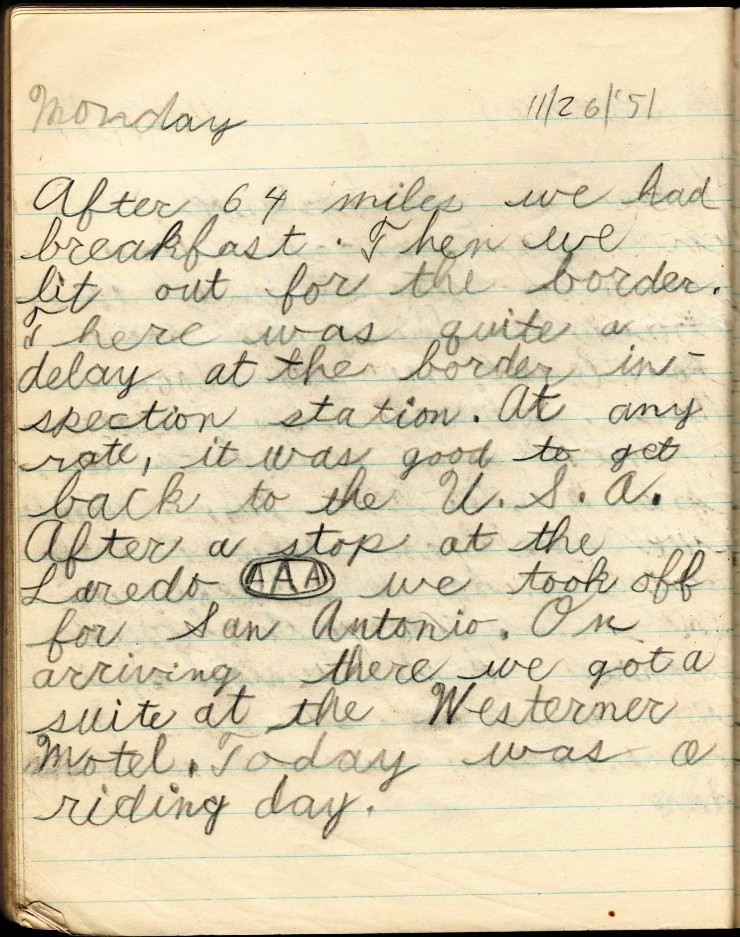 Monday 11/26/'51
After 64 miles we had
breakfast. Then we
lit out for the border.
There was quite a
delay at the border in-
spection station. At any
rate, it was good to get
back to the U.S.A.
After a stop at the
Laredo AAA we took off
for San Antonio. On
arriving there we got a
suite at the Westerner
Motel. Today was a
riding day.